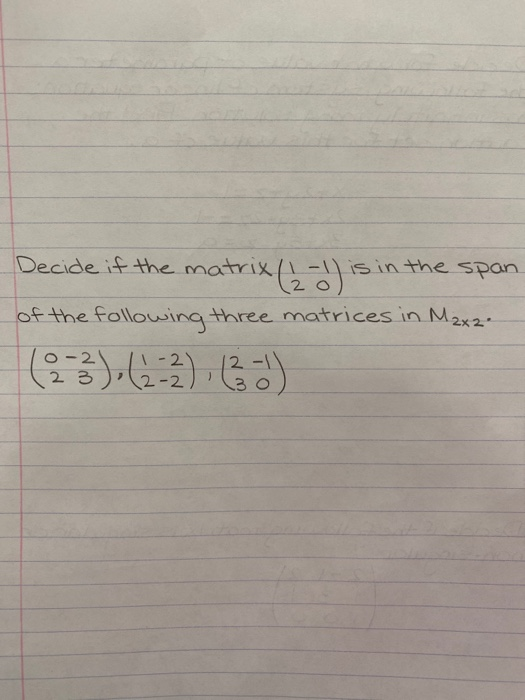 Decide if the matrix (1 -1 / 2 0) is in the span
of the following three matrices in M2x2.
(0 -2 / 2 3), (1 -2 / 2 -2), (2 -1 / 3 0)